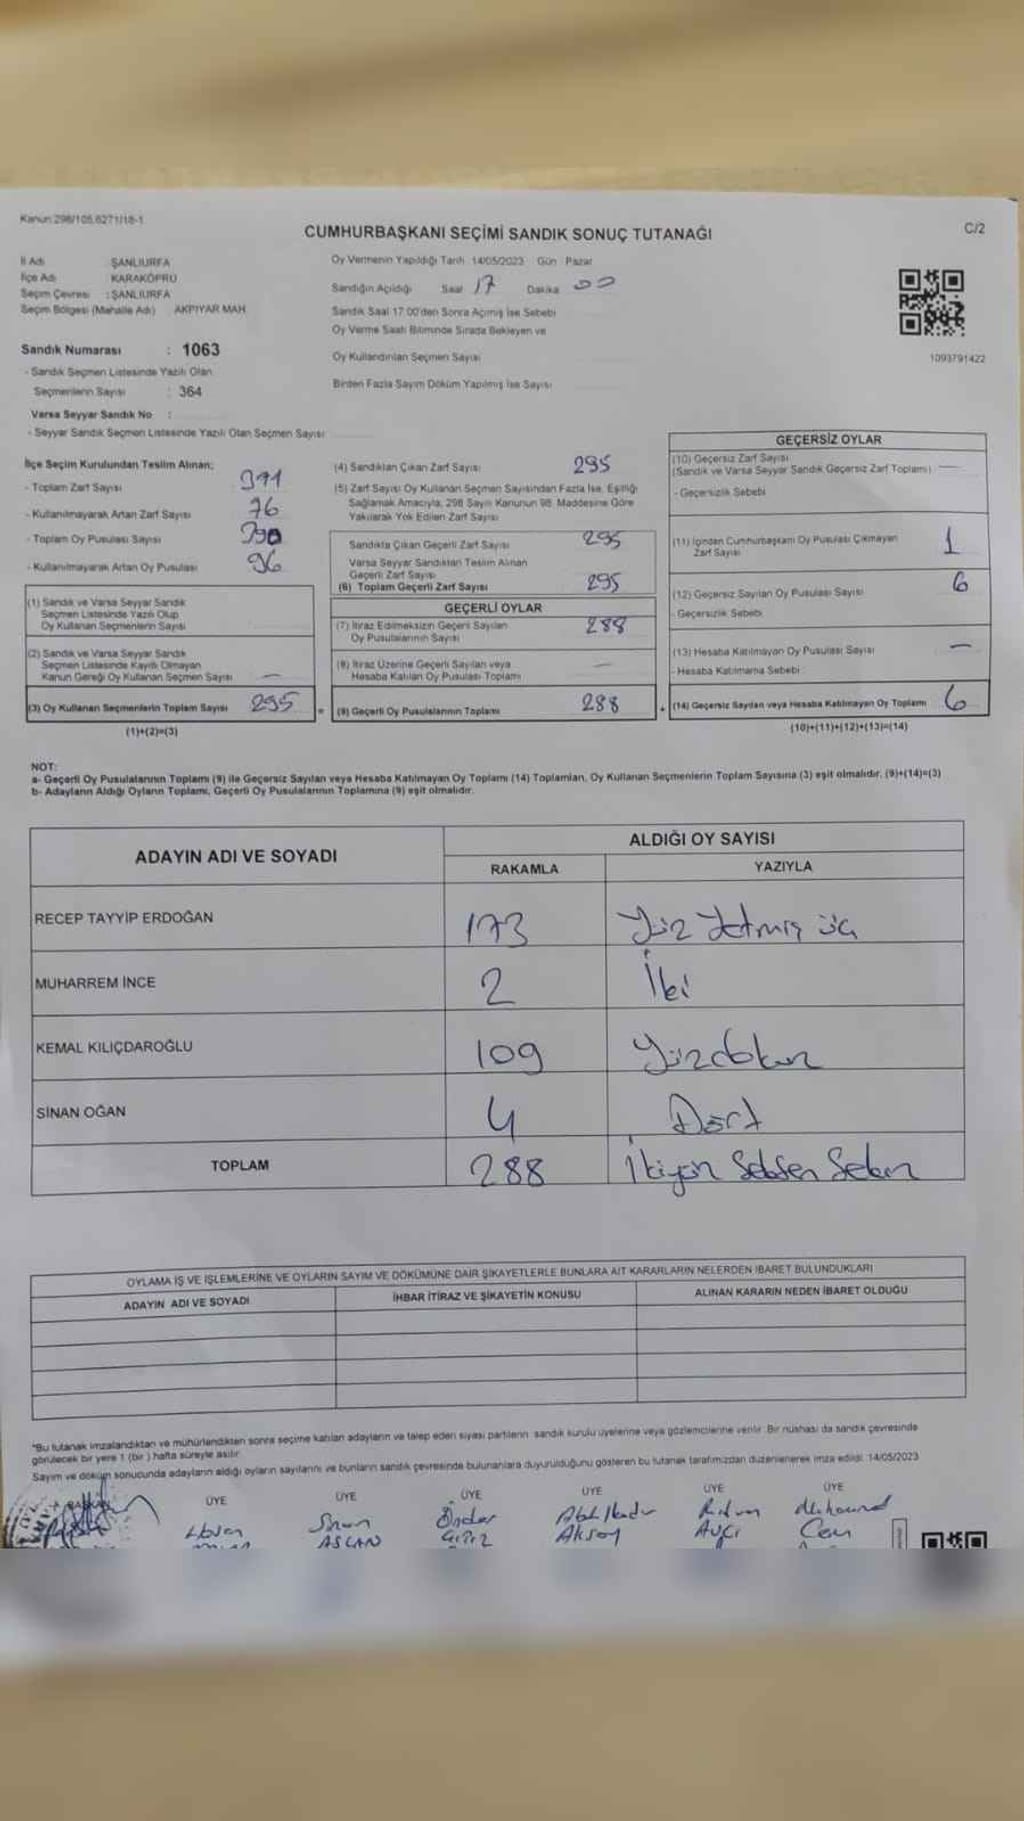 Kanun:298/105,6271/18-1
CUMHURBAŞKANI SEÇİMİ SANDIK SONUÇ TUTANAĞI
C/2
İl Adı ŞANLIURFA
İlçe Adı KARAKÖPRÜ
Seçim Çevresi : ŞANLIURFA
Seçim Bölgesi (Mahalle Adı) AKPIYAR MAH.
Oy Vermenin Yapıldığı Tarih 14/05/2023 Gün Pazar
Sandığın Açıldığı Saat 17 Dakika 00
Sandık Saat 17.00'den Sonra Açılmış İse Sebebi
Oy Verme Saati Bitiminde Sırada Bekleyen ve
Oy Kullandırılan Seçmen Sayısı
Birden Fazla Sayım Döküm Yapılmış İse Sayısı
1093791422
Sandık Numarası : 1063
- Sandık Seçmen Listesinde Yazılı Olan
Seçmenlerin Sayısı : 364
Varsa Seyyar Sandık No :
- Seyyar Sandık Seçmen Listesinde Yazılı Olan Seçmen Sayısı
İlçe Seçim Kurulundan Teslim Alınan;
- Toplam Zarf Sayısı 391
- Kullanılmayarak Artan Zarf Sayısı 76
- Toplam Oy Pusulası Sayısı 390
- Kullanılmayarak Artan Oy Pusulası 96
(1) Sandık ve Varsa Seyyar Sandık
Seçmen Listesinde Yazılı Olup
Oy Kullanan Seçmenlerin Sayısı
(2) Sandık ve Varsa Seyyar Sandık
Seçmen Listesinde Kayıtlı Olmayan
Kanun Gereği Oy Kullanan Seçmen Sayısı —
(3) Oy Kullanan Seçmenlerin Toplam Sayısı 295
(1)+(2)=(3)
=
(4) Sandıktan Çıkan Zarf Sayısı 295
(5) Zarf Sayısı Oy Kullanan Seçmen Sayısından Fazla İse, Eşitliği
Sağlamak Amacıyla, 298 Sayılı Kanunun 98. Maddesine Göre
Yakılarak Yok Edilen Zarf Sayısı
Sandıkta Çıkan Geçerli Zarf Sayısı 295
Varsa Seyyar Sandıktan Teslim Alınan
Geçerli Zarf Sayısı
(6) Toplam Geçerli Zarf Sayısı 295
GEÇERLİ OYLAR
(7) İtiraz Edilmeksizin Geçerli Sayılan
Oy Pusulalarının Sayısı 288
(8) İtiraz Üzerine Geçerli Sayılan veya
Hesaba Katılan Oy Pusulası Toplamı —
(9) Geçerli Oy Pusulalarının Toplamı 288
+
GEÇERSİZ OYLAR
(10) Geçersiz Zarf Sayısı
(Sandık ve Varsa Seyyar Sandık Geçersiz Zarf Toplamı) —
- Geçersizlik Sebebi
(11) İçinden Cumhurbaşkanı Oy Pusulası Çıkmayan
Zarf Sayısı 1
(12) Geçersiz Sayılan Oy Pusulası Sayısı 6
- Geçersizlik Sebebi
(13) Hesaba Katılmayan Oy Pusulası Sayısı —
- Hesaba Katılmama Sebebi
(14) Geçersiz Sayılan veya Hesaba Katılmayan Oy Toplamı 6
(10)+(11)+(12)+(13)=(14)
NOT:
a- Geçerli Oy Pusulalarının Toplamı (9) ile Geçersiz Sayılan veya Hesaba Katılmayan Oy Toplamı (14) Toplamları, Oy Kullanan Seçmenlerin Toplam Sayısına (3) eşit olmalıdır. (9)+(14)=(3)
b- Adayların Aldığı Oyların Toplamı, Geçerli Oy Pusulalarının Toplamına (9) eşit olmalıdır.
ADAYIN ADI VE SOYADI
ALDIĞI OY SAYISI
RAKAMLA YAZIYLA
RECEP TAYYİP ERDOĞAN 173 Yüz Yetmiş üç
MUHARREM İNCE 2 İki
KEMAL KILIÇDAROĞLU 109 Yüzdokuz
SİNAN OĞAN 4 Dört
TOPLAM 288 İkiyüz Seksen Sekiz
OYLAMA İŞ VE İŞLEMLERİNE VE OYLARIN SAYIM VE DÖKÜMÜNE DAİR ŞİKAYETLERLE BUNLARA AİT KARARLARIN NELERDEN İBARET BULUNDUKLARI
ADAYIN ADI VE SOYADI İHBAR İTİRAZ VE ŞİKAYETİN KONUSU ALINAN KARARIN NEDEN İBARET OLDUĞU
*Bu tutanak imzalandıktan ve mühürlendikten sonra seçime katılan adayların ve talep eden siyasi partilerin sandık kurulu üyelerine veya gözlemcilerine verilir. Bir nüshası da sandık çevresinde
görülecek bir yere 1 (bir) hafta süreyle asılır.
Sayım ve döküm sonucunda adayların aldığı oyların sayılarını ve bunların sandık çevresinde bulunanlara duyurulduğunu gösteren bu tutanak tarafımızdan düzenlenerek imza edildi. 14/05/2023
BAŞKAN ÜYE ÜYE ÜYE ÜYE ÜYE ÜYE
Sinan Önder Rıdvan
ASLAN Aksoy Avcı Can